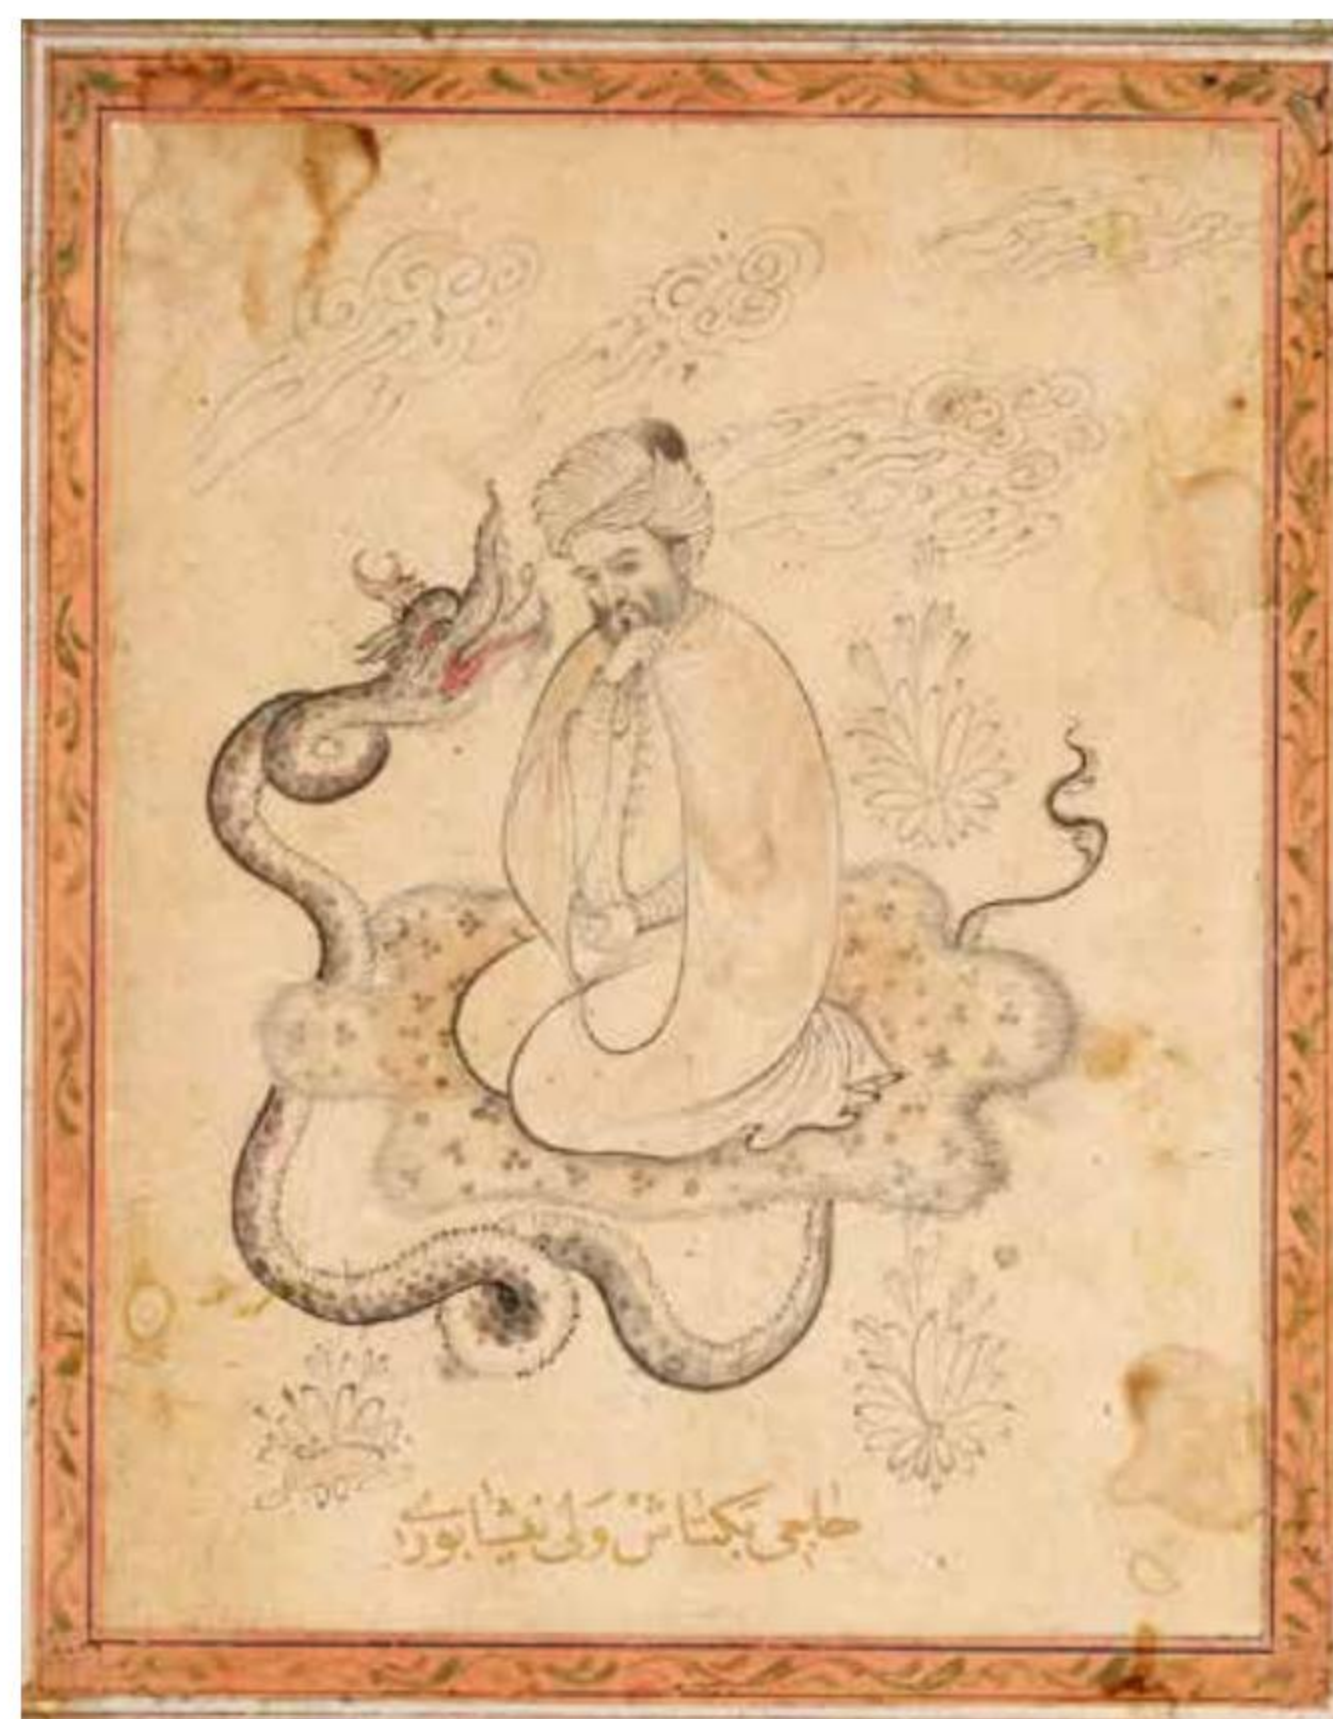 حاجی بکتاش ولی نیشابوری